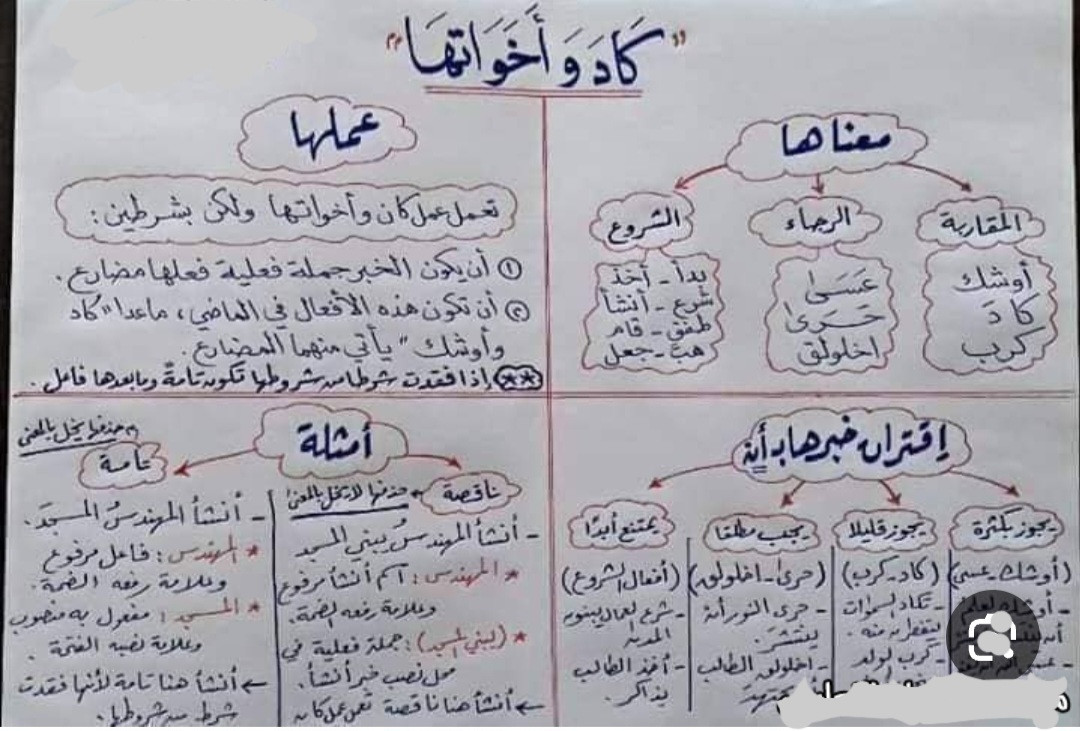 "كَادَ وَ أَخَوَاتهَا"
معناها
المقاربة
أوشك
كادَ
كرب
الرجاء
عَسَى
حَرَى
اخلولق
الشروع
بدأ - أخذ
شرع - أنشأ
طفق - قام
هبّ - جعل
عملها
تعمل عمل كان وأخواتها ولكن بشرطين :
① أن يكون الخبر جملة فعلية فعلها مضارع .
② أن تكون هذه الأفعال في الماضي ، ماعدا "كاد
وأوشك" يأتي منهما المضارع .
** إذا فقدت شرطا من شروطها تكون تامة وما بعدها فاعل .
إقتران خبرها بـ أن
يجوز بكثرة
(أوشك - عسى)
يجوز قليلا
(كاد - كرب)
- تكاد السموات
يتفطرن منه .
- كرب لولد
يجب مطلقا
(حرى - اخلولق)
- حرى النور أن
ينتشر .
- اخلولق الطالب
يمتنع أبدًا
(أفعال الشروع)
- شرع العمال يبنون
- أخذ الطالب
يذاكر .
أمثلة
ناقصة
حذفها لا يخل بالمعنى
- أنشأ المهندسُ يبني المسجد
* المهندس : اسم أنشأ مرفوع
وعلامة رفعه الضمة .
* (يبني المسجد) : جملة فعلية في
محل نصب خبر أنشأ .
← أنشأ هنا ناقصة تعمل عمل كان
تامة
حذفها يخل بالمعنى
- أنشأ المهندسُ المسجدَ .
* المهندس : فاعل مرفوع
وعلامة رفعه الضمة .
* المسجد : مفعول به منصوب
وعلامة نصبه الفتحة .
← أنشأ هنا تامة لأنها فقدت
شرط من شروطها .